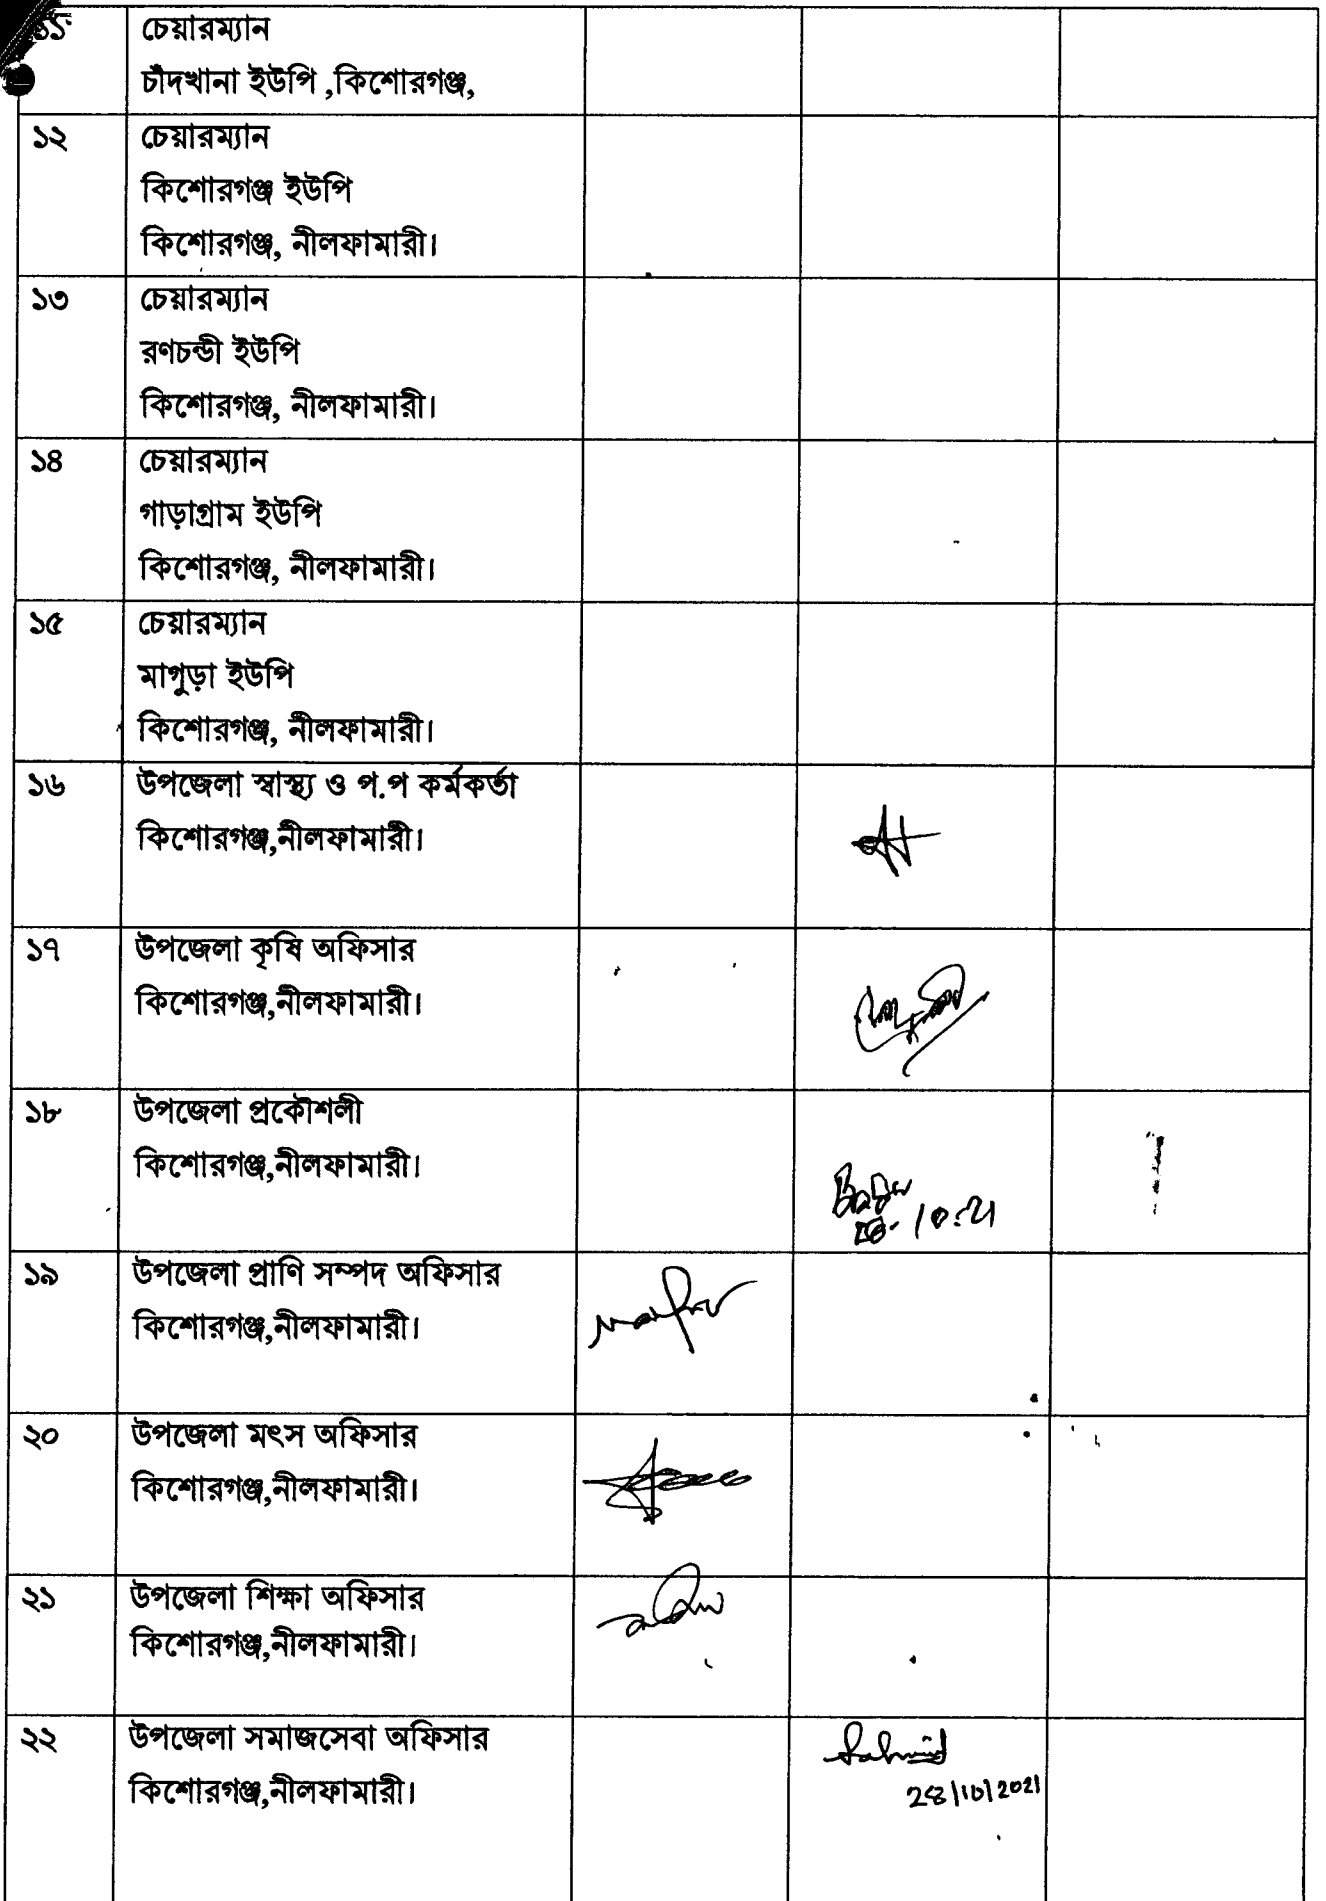 ১১ চেয়ারম্যান
চাঁদখানা ইউপি ,কিশোরগঞ্জ,
১২ চেয়ারম্যান
কিশোরগঞ্জ ইউপি
কিশোরগঞ্জ, নীলফামারী।
১৩ চেয়ারম্যান
রণচন্ডী ইউপি
কিশোরগঞ্জ, নীলফামারী।
১৪ চেয়ারম্যান
গাড়াগ্রাম ইউপি
কিশোরগঞ্জ, নীলফামারী।
১৫ চেয়ারম্যান
মাগুড়া ইউপি
কিশোরগঞ্জ, নীলফামারী।
১৬ উপজেলা স্বাস্থ্য ও প.প কর্মকর্তা
কিশোরগঞ্জ,নীলফামারী।
১৭ উপজেলা কৃষি অফিসার
কিশোরগঞ্জ,নীলফামারী।
১৮ উপজেলা প্রকৌশলী
কিশোরগঞ্জ,নীলফামারী।
১৯ উপজেলা প্রাণি সম্পদ অফিসার
কিশোরগঞ্জ,নীলফামারী।
২০ উপজেলা মৎস অফিসার
কিশোরগঞ্জ,নীলফামারী।
২১ উপজেলা শিক্ষা অফিসার
কিশোরগঞ্জ,নীলফামারী।
২২ উপজেলা সমাজসেবা অফিসার
কিশোরগঞ্জ,নীলফামারী।
28/10/2021